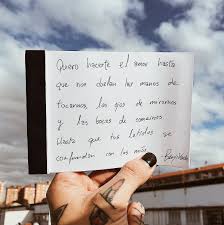 Quiero hacerte el amor hasta
que nos duelan las manos de
tocarnos, los ojos de mirarnos
y las bocas de comernos.
Hasta que tus latidos se
confundan con los míos